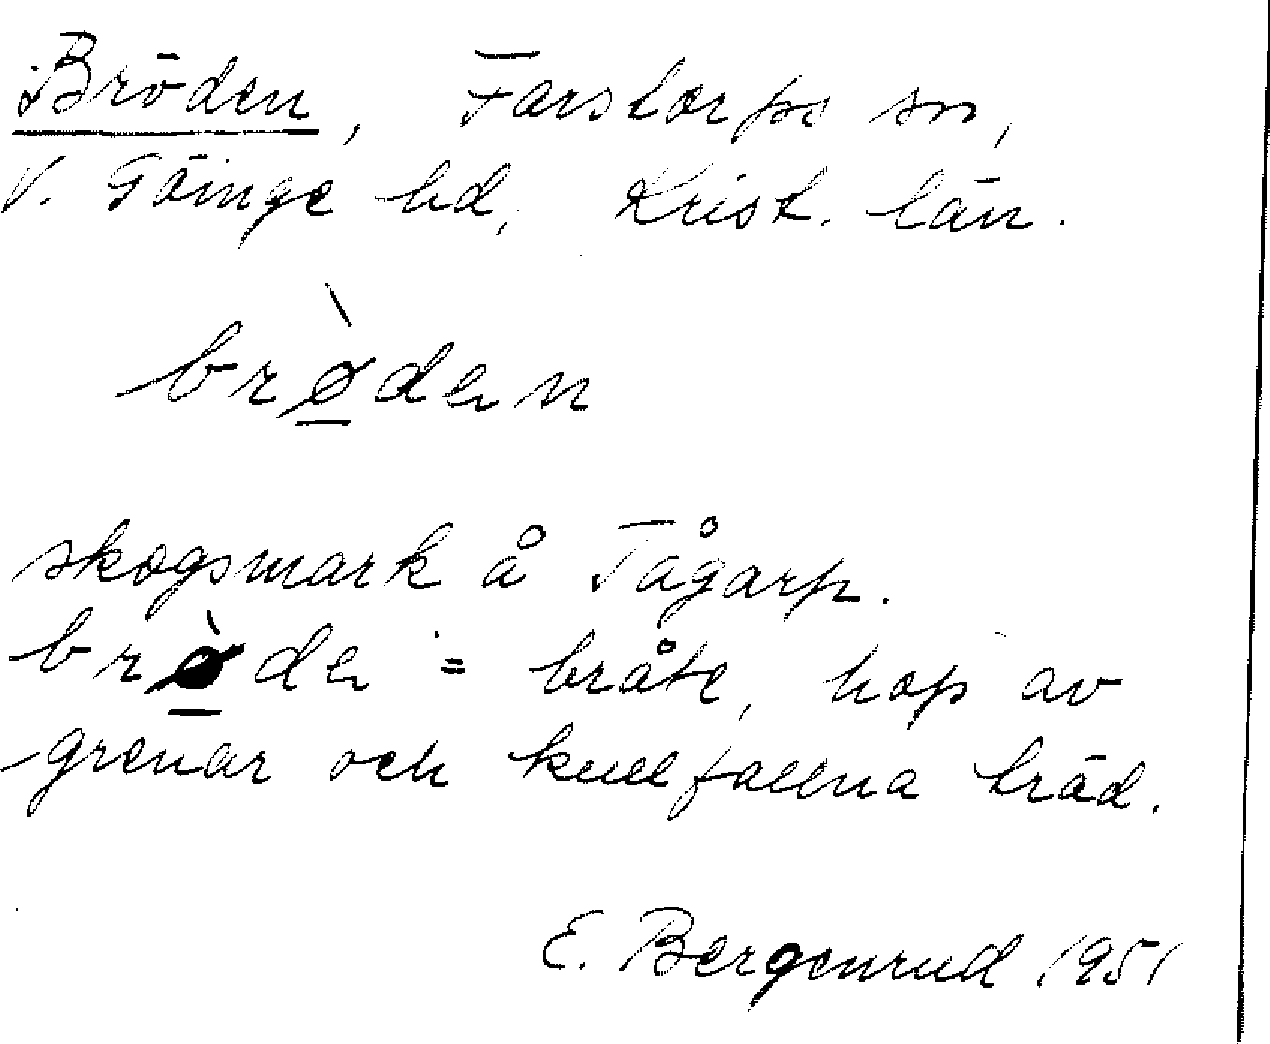 Bröden, Farstorps sn,
V. Göinge hd, Krist. län.
brø̀den
skogsmark å Tågarp.
brø̀de = bråte, hop av
grenar och kullfallna träd.
E. Bergenrud 1951